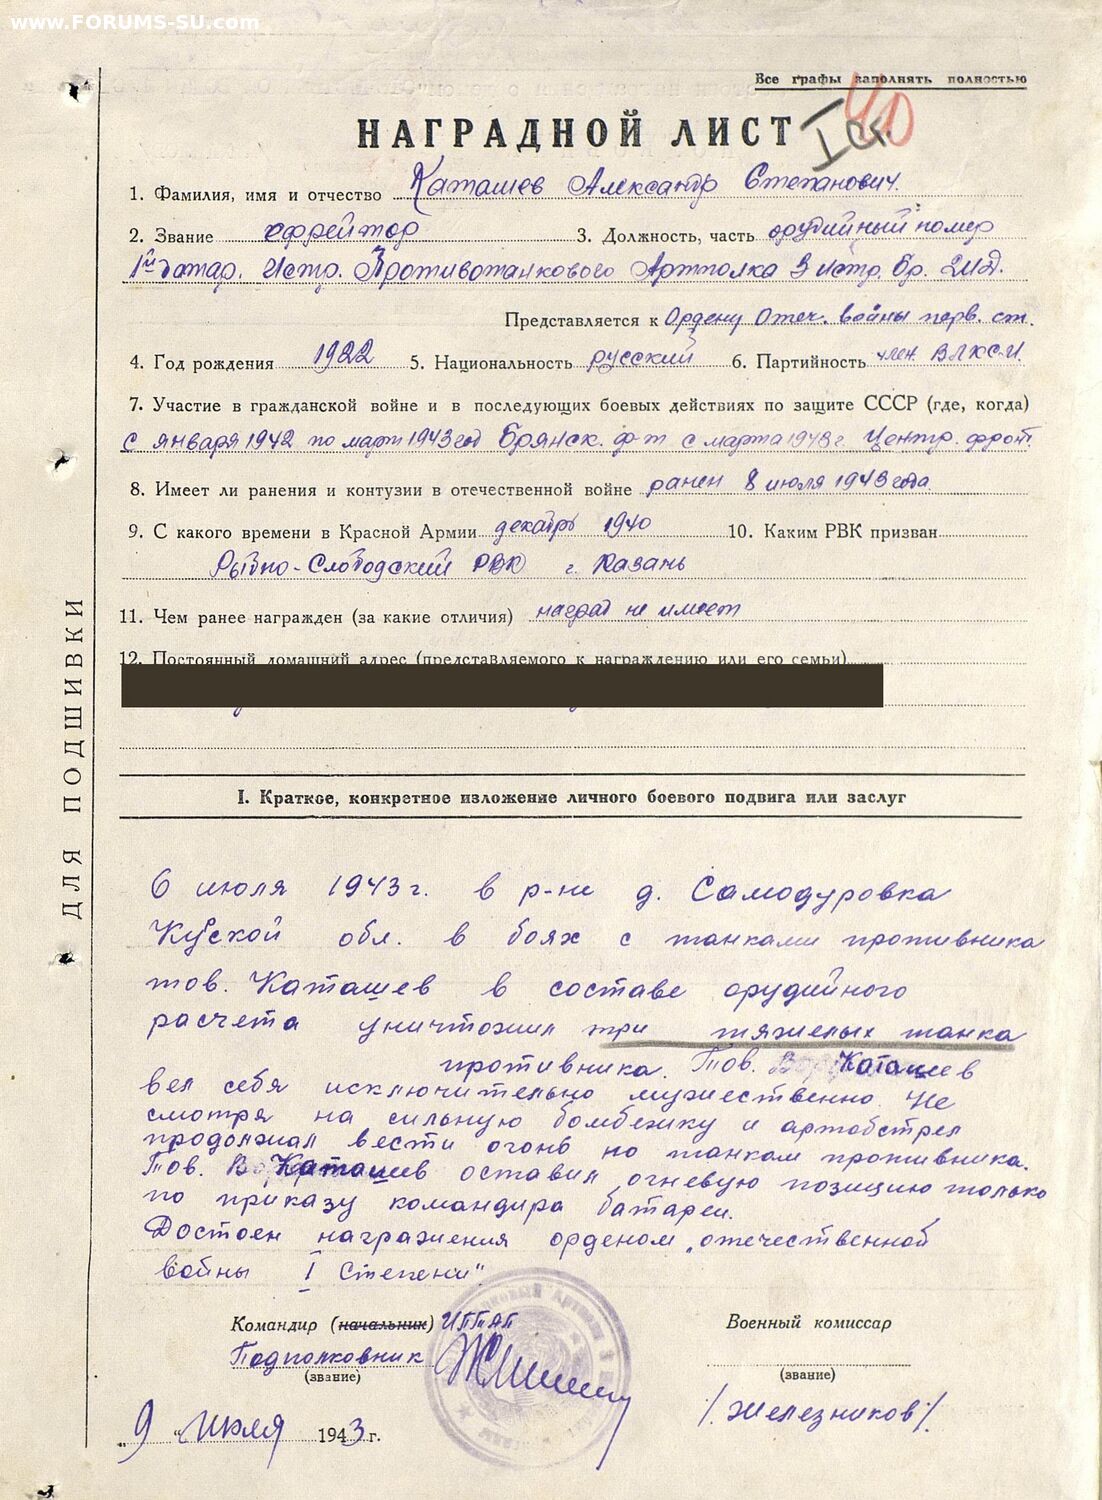 www.FORUMS-SU.com
Все графы заполнять полностью
НАГРАДНОЙ ЛИСТ I ст. 40
1. Фамилия, имя и отчество Каташев Александр Степанович.
2. Звание ефрейтор 3. Должность, часть орудийный номер
1й батар. Истр. Противотанкового Артполка 3 истр. бр. 2ИД.
Представляется к Ордену Отеч. войны перв. ст.
4. Год рождения 1922 5. Национальность русский 6. Партийность член ВЛКСМ
7. Участие в гражданской войне и в последующих боевых действиях по защите СССР (где, когда)
с января 1942 по март 1943 год Брянск. ф-т с марта 1943 г. Центр. фронт.
8. Имеет ли ранения и контузии в отечественной войне ранен 8 июля 1943 года
9. С какого времени в Красной Армии декабрь 1940 10. Каким РВК призван
Рыбно-Слободский РВК г. Казань
11. Чем ранее награжден (за какие отличия) наград не имеет
12. Постоянный домашний адрес (представляемого к награждению или его семьи)
ДЛЯ ПОДШИВКИ
I. Краткое, конкретное изложение личного боевого подвига или заслуг
6 июля 1943 г. в р-не д. Самодуровка
Курской обл. в боях с танками противника
тов. Каташев в составе орудийного
расчета уничтожил три тяжелых танка
противника. Тов. Каташев
вел себя исключительно мужественно. Не
смотря на сильную бомбежку и артобстрел
продолжал вести огонь по танкам противника.
Тов. Каташев оставил огневую позицию только
по приказу командира батареи.
Достоен награжения орденом „отечественной
войны I Степени"
Командир (начальник) ИПТАП Военный комиссар
Подполковник
(звание) (звание)
/Железников/.
„9" июля 1943 г.